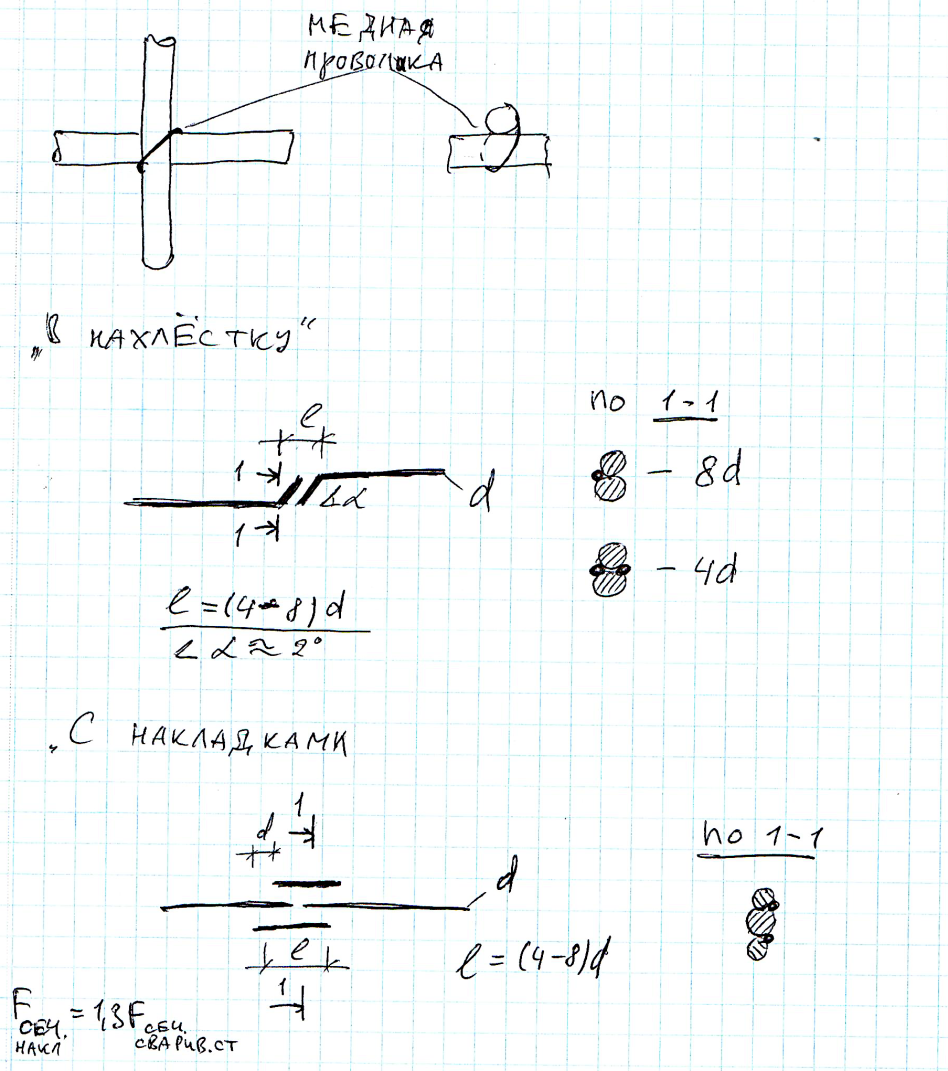 МЕДНАЯ
ПРОВОЛОКА
„В НАХЛЁСТКУ“
l
1
∠α
d
1
по 1-1
— 8d
— 4d
l = (4-8)d
∠ α ≈ 2°
„С НАКЛАДКАМИ
1
d
d
l
1
l = (4-8)d
по 1-1
Fсеч. накл = 1,3 Fсеч. сварив.ст